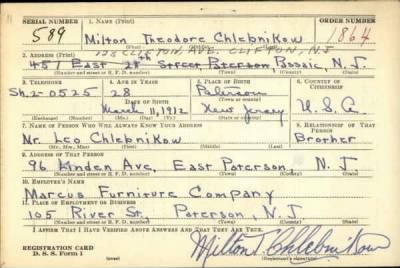 SERIAL NUMBER 1. NAME (Print) ORDER NUMBER
589 Milton Theodore Chlebnikow 1864
(First) (Middle) (Last)
128 CLIFTON AVE. CLIFTON, N.J.
2. ADDRESS (Print)
451 East 28th Street, Paterson, Passaic, N. J.
(Number and street or R. F. D. number) (Town) (County) (State)
3. TELEPHONE 4. AGE IN YEARS 5. PLACE OF BIRTH 6. COUNTRY OF CITIZENSHIP
Sh.2-0525 28 Paterson
DATE OF BIRTH (Town or county)
March 11, 1912 New Jersey U.S.A.
(Exchange) (Number) (Mo.) (Day) (Yr.) (State or country)
7. NAME OF PERSON WHO WILL ALWAYS KNOW YOUR ADDRESS 8. RELATIONSHIP OF THAT PERSON
Mr. Leo Chlebnikow Brother
(Mr., Mrs., Miss) (First) (Middle) (Last)
9. ADDRESS OF THAT PERSON
96 Linden Ave, East Paterson, N. J
(Number and street or R. F. D. number) (Town) (County) (State)
10. EMPLOYER'S NAME
Marcus Furniture Company
11. PLACE OF EMPLOYMENT OR BUSINESS
105 River St, Paterson, N.J
(Number and street or R. F. D. number) (Town) (County) (State)
I AFFIRM THAT I HAVE VERIFIED ABOVE ANSWERS AND THAT THEY ARE TRUE.
REGISTRATION CARD
D. S. S. Form 1 Milton T. Chlebnikow
(over) (Registrant's signature)